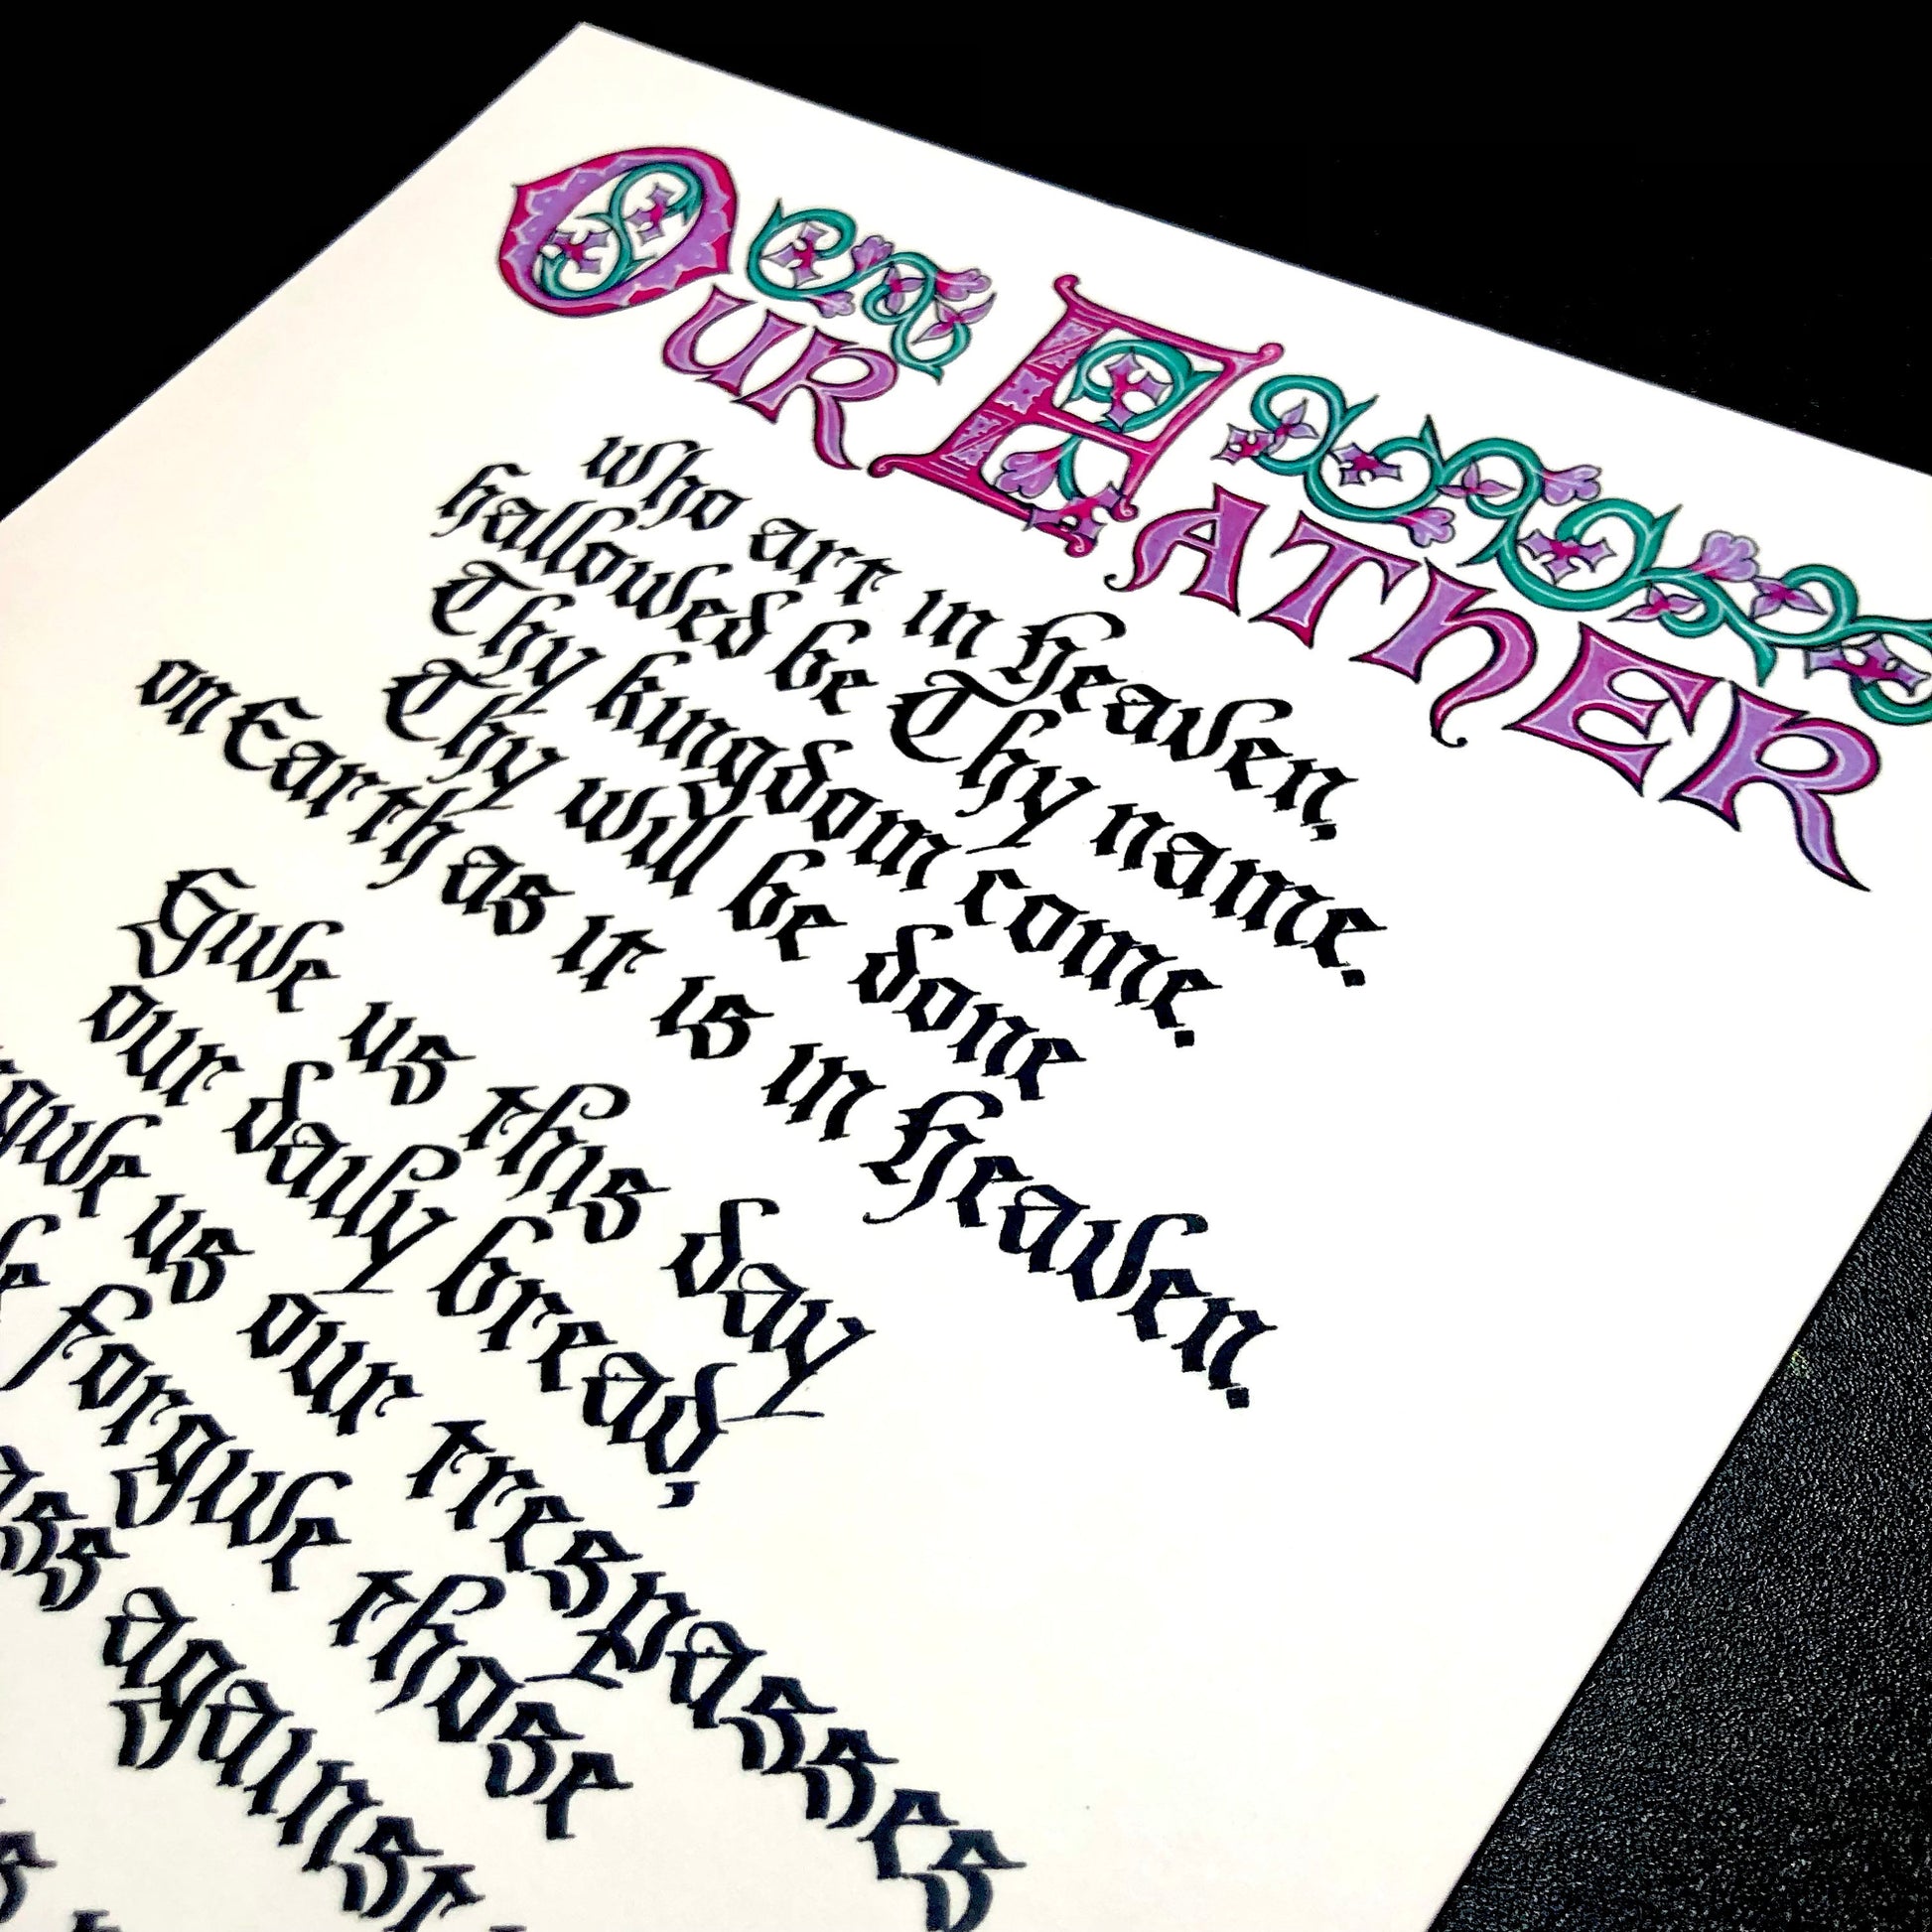 OUR FATHER
Who art in Heaven.
hallowed be Thy name.
Thy kingdom come.
Thy will be done
on Earth as it is in Heaven.
Give us this day
our daily bread,
give us our trespasses
forgive those
ass against